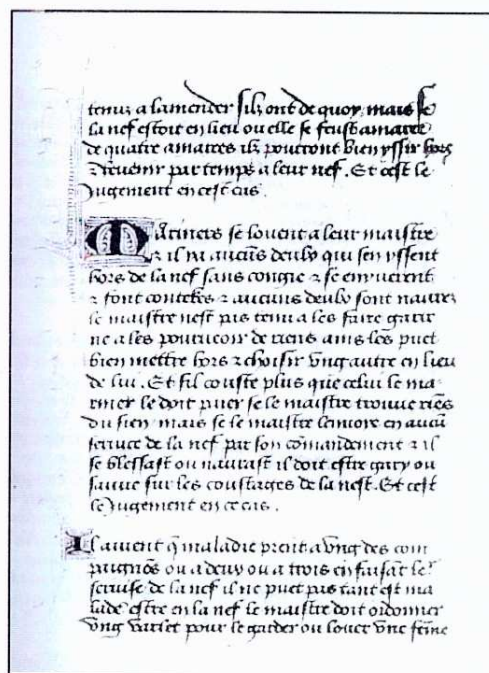 tenuz a lamender silz ont de quoy, mais se
la nef estoit en lieu ou elle se feust amaree
de quatre amarres ilz pourront bien yssir hors
& revenir par temps a leur nef. Et cest le
Jugement en cest cas.
Mariners se louent a leur maistre
& il ni a aucuns deulx qui sen yssent
hors de la nef sans congie & se enyvrent
& font contekes & aucuns deulx sont navrez
le maistre nest pas tenu a les faire garir
ne a les pourveoir de riens ains les puet
bien mettre hors & choisir ung autre en lieu
de lui. Et sil couste plus que celui le ma
riner le doit paier se le maistre trouve riēs
du sien mais se le maistre lenvoie en aucū
service de la nef par son cōmandement & il
se blessast ou navrast il doit estre gary ou
sauve sur les coustages de la nef. Et cest
le Jugement en ce cas.
Il avient q̄ maladie prent a ung des com
paignōs ou a deux ou a trois en faisāt le
servise de la nef il ne puet pas tant est ma
lade estre en la nef le maistre doit ordonner
ung varlet pour le garder ou louer une feme